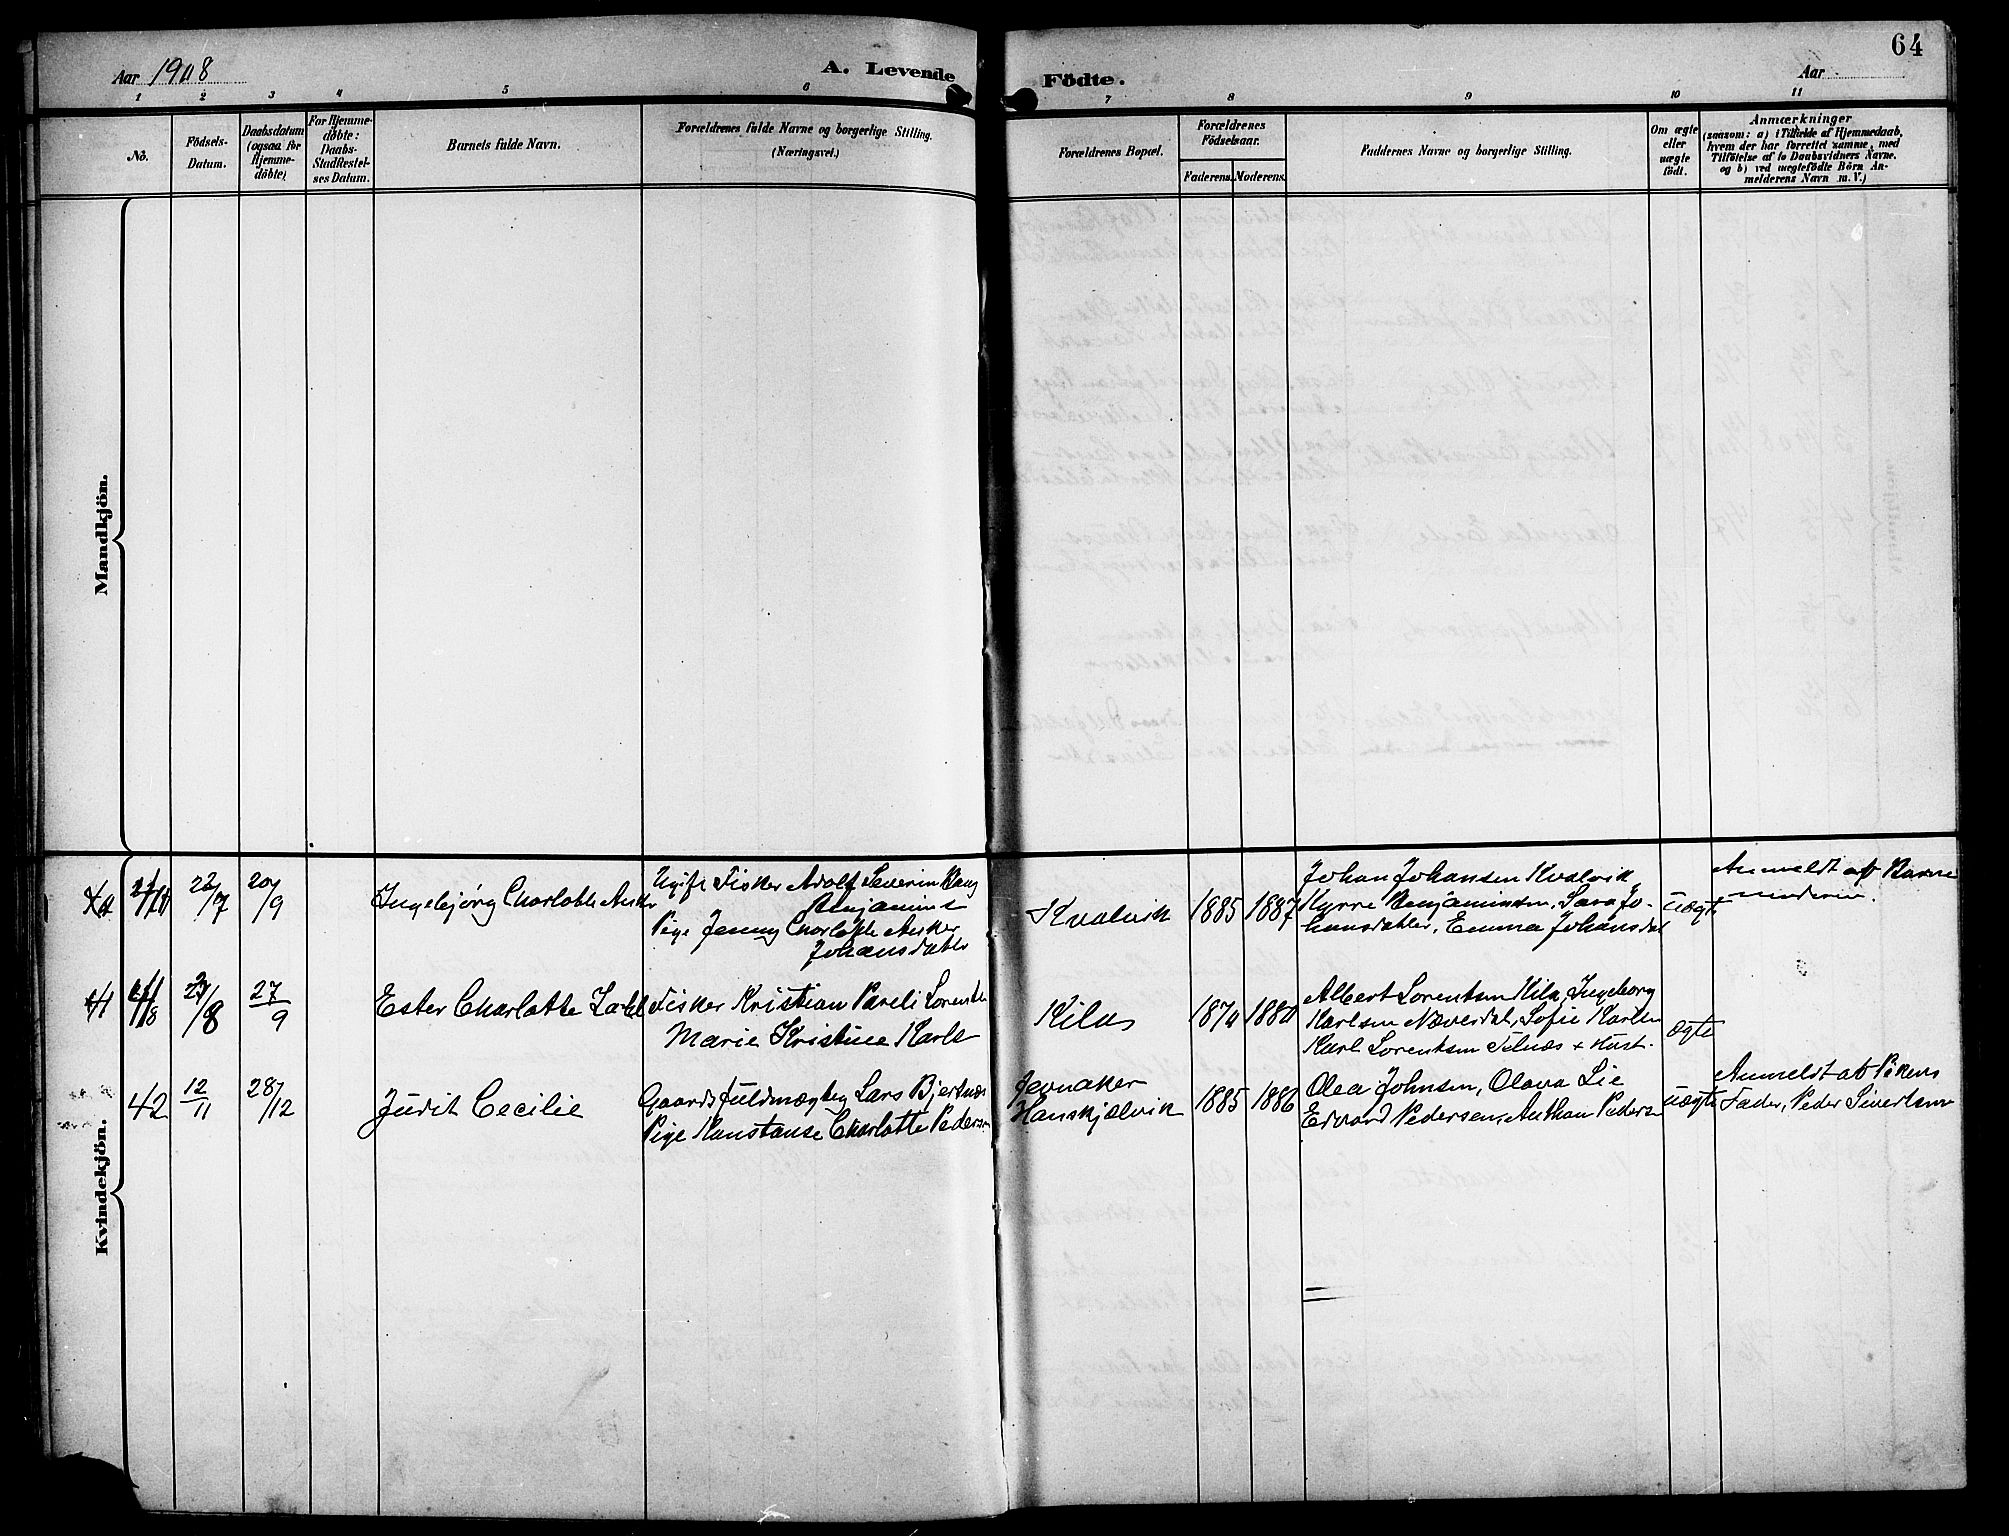 64
Aar 1908 A. Levende Födte. Aar
1 2 3 4 5 6 7 8 9 10 11
No.
Födsels-
Datum.
Daabsdatum
(ogsaa for
Hjemme-
döbte)
For Hjemme-
döbte:
Daabs-
Stadfæstel-
ses Datum.
Barnets fulde Navn.
Forældrenes fulde Navne og borgerlige Stilling.
(Næringsvei.)
Forældrenes Bopæl.
Forældrenes
Födselsaar.
Faderens. Moderens.
Faddernes Navne og borgerlige Stilling.
Om ægte
eller
uægte
födt.
Anmærkninger
(saasom: a) i Tilfælde af Hjemmedaab,
hvem der har forrettet samme, med
Tilföielse af to Daabsvidners Navne.
og b) ved uægtefödte Börn An-
melderens Navn m. V.)
Mandkjön.
Kvindekjön.
22/7 20/9 Ingebjørg Charlotte
Ugift Fisker Adolf Severin
Benjamins
Pige Jenny Charlotte
Johansdatter
Kvalvik 1885 1887
Johan Johansen Kvalvik
Benjaminsen, Sara Jo-
hansdatter, Emma Johansdat
uægte
Anmeldt af Barne
moderen.
27/9 Ester Charlotte
Fisker Kristian Pareli Lorents
Marie Kristine Karls
Kila 1874 1880
Albert Lorentsen Kila, Ingeborg
Karlsen Næverdal, Sofie Karlsen
Karl Lorentsen + Hust.
ægte
42 12/11 28/12 Judit Cecilie
Gaardsfuldmægtig Lars Bjertnæs
Pige Konstanse Charlotte Pedersen
Jevnaker
Hanskjølvik
1885 1886
Olea Johnsen, Olava Lie
Edvard Pedersen, Anthon Pedersen
uægte
Anmeldt af Pikens
Fader, Peder Sivertsen